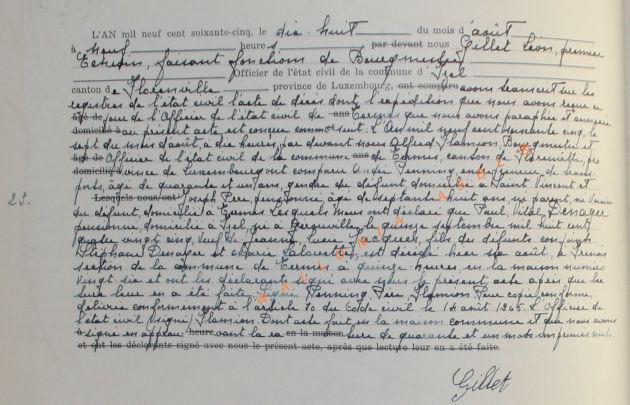 L'AN mil neuf cent soixante-cinq, le dix huit du mois d'août
à neuf heures par devant nous Gillet Léon, premier
Echevin, faisant fonctions de Bourgmestre
Officier de l'état civil de la commune d'Izel
canton de Florenville province de Luxembourg, ont comparu avons transcrit sur les
registres de l'état civil l'acte de décès dont l'expédition que nous avons reçue ce
âgé de jour de l'Officier de l'état civil de ans que nous avons paraphée et annexée
domicilié à au présent acte est conçue comme suit. L'An mil neuf cent soixante cinq, le
sept du mois d'août, à dix heures, par devant nous Alfred Flamion, Bourgmestre et
âgé de Officier de l'état civil de la commune ans de Termes, canton de Florenville, pro
domicilié à vince de Luxembourg ont comparu André Penning, entrepreneur de trans
ports, âgé de quarante et un ans, gendre du défunt, domicilié à Saint Vincent et
25. Lesquels nous ont Joseph Père, pensionné, âgé de septante huit ans, ni parent, ni
du défunt, domicilié à Termes Lesquels Nous ont déclaré que Paul, Vital, Denayer
pensionné, domicilié à Izel, né à le quinze septembre mil huit cent
quatre vingt cinq, veuf de Jeanny, Lucie Jacques, fils des défunts conjoints
Stéphane Denayer et Marie est décédé hier six août, à
section de la commune de Termes à quinze heures, en la maison numéro
vingt six et ont les déclarants signé avec nous le présent acte après que lec
ture leur en a été faite. (signé) Penning Père, Flamion Pour copie conforme,
délivrée conformément à l'article 70 du Code civil le 14 août 1965. L'Officier de
l'état civil (signé) Flamion Dont acte fait en la maison commune et que nous avons
à signé en approuvant heure la ra en la maison ture de quarante et un mots imprimés nuls.
et ont les déclarants signé avec nous le présent acte, après que lecture leur en a été faite.
Gillet